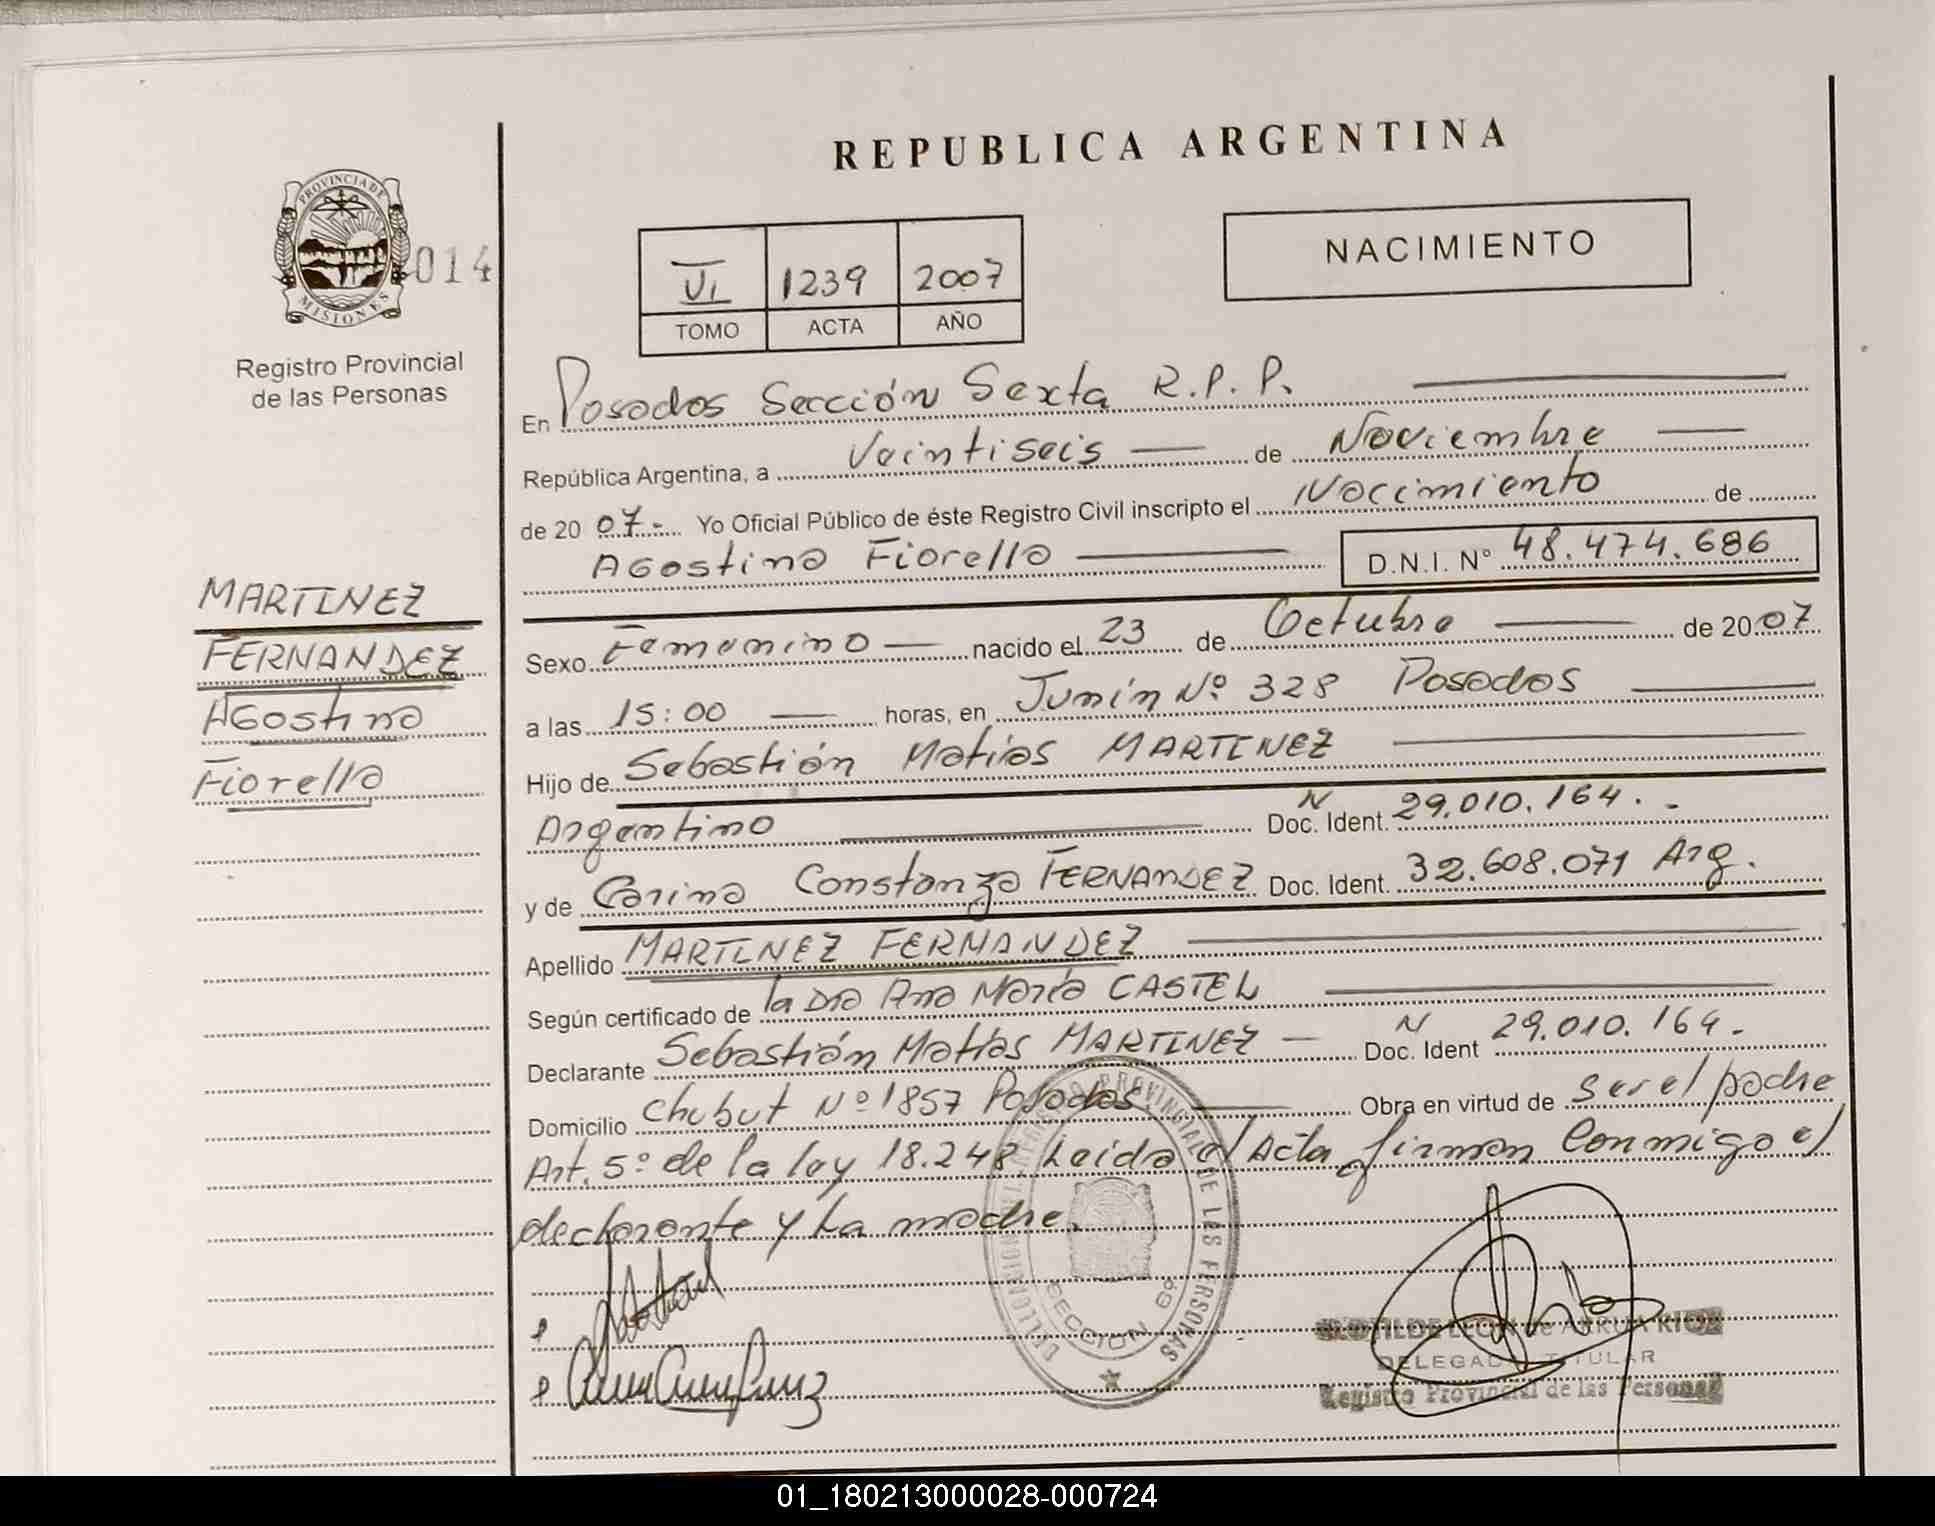 REPUBLICA ARGENTINA
PROVINCIA DE MISIONES
014
Registro Provincial
de las Personas
VI 1239 2007
TOMO ACTA AÑO
NACIMIENTO
En Posadas Sección Sexta R.P.P.
República Argentina, a Veintiseis de Noviembre
de 2007.- Yo Oficial Público de éste Registro Civil inscripto el Nacimiento de
Agostina Fiorella D.N.I. N° 48.474.686
MARTINEZ
FERNANDEZ
Agostina
Fiorella
Sexo Femenino nacido el 23 de Octubre de 2007
a las 15:00 horas, en Junín Nº 328 Posadas
Hijo de Sebastián Matías MARTINEZ
Argentino Doc. Ident. N 29.010.164.-
y de Carina Constanza FERNANDEZ Doc. Ident. 32.608.071 Arg.
Apellido MARTINEZ FERNANDEZ
Según certificado de la Dra Ana María CASTEL
Declarante Sebastián Matías MARTINEZ Doc. Ident N 29.010.164.
Domicilio Chubut Nº 1857 Posadas Obra en virtud de ser el padre
Art. 5º de la ley 18.248 Leida el Acta firman Conmigo el
declarante y La madre.
REGISTRO PROVINCIAL DE LAS PERSONAS
SECCION 6ª
DELEGADA TITULAR
Registro Provincial de las Personas
01_180213000028-000724